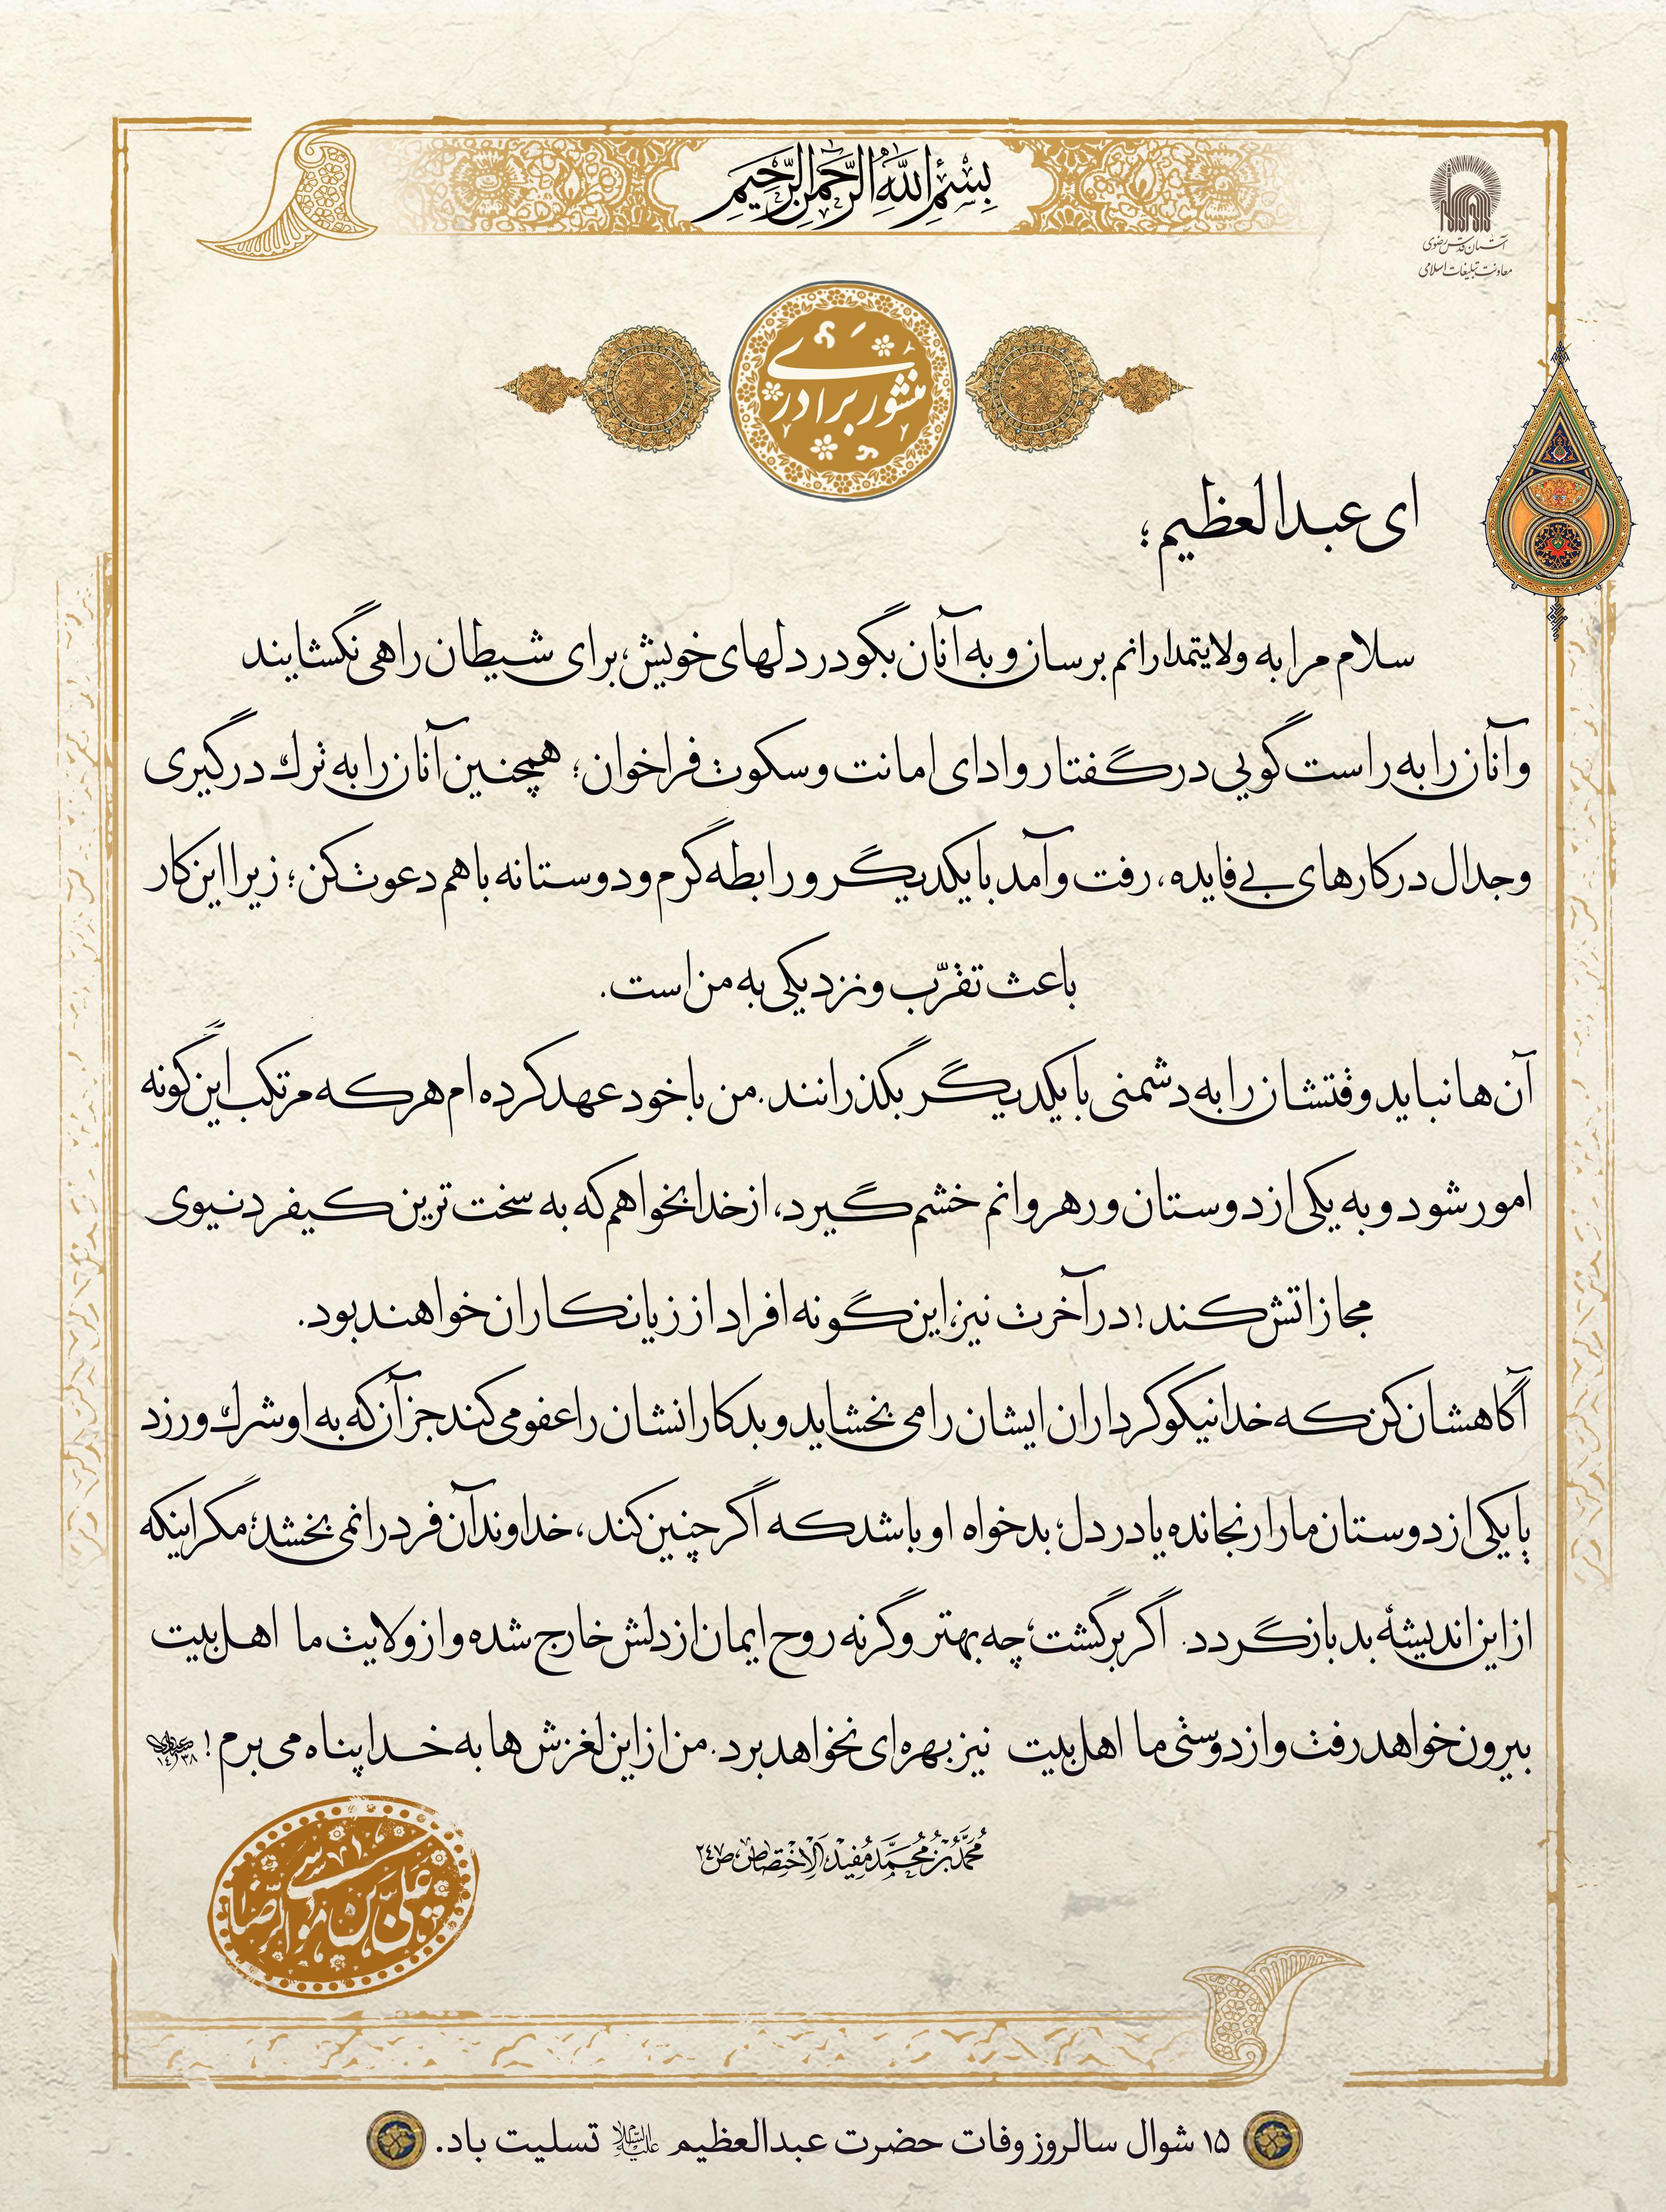 بسم الله الرحمن الرحیم
آستان قدس رضوی
معاونت تبلیغات اسلامی
منشور برادری
ای عبدالعظیم؛
سلام مرا به ولایتمدارانم برسان و به آنان بگو در دلهای خویش، برای شیطان راهی نگشایند
و آنان را به راست گویی در گفتار و ادای امانت و سکوت فراخوان؛ همچنین آنان را به ترك درگیری
و جدال در کارهای بی فایده، رفت و آمد با یکدیگر و رابطه گرم و دوستانه با هم دعوت کن؛ زیرا این کار
باعث تقرّب و نزدیکی به من است.
آن ها نباید وقتشان را به دشمنی با یکدیگر بگذرانند. من با خود عهد کرده ام هر که مرتکب این گونه
امور شود و به یکی از دوستان و رهروانم خشم گیرد، از خدا بخواهم که به سخت ترین کیفر دنیوی
مجازاتش کند! در آخرت نیز، این گونه افراد از زیانکاران خواهند بود.
آگاهشان کن که خدا نیکوکرداران ایشان را می بخشاید و بدکارانشان را عفو می کند جز آن که به او شرك ورزد
یا یکی از دوستان ما را رنجانده یا در دل، بدخواه او باشد که اگر چنین کند، خداوند آن فرد را نمی بخشد؛ مگر اینکه
از این اندیشهٔ بد بازگردد. اگر برگشت؛ چه بهتر و گرنه روح ایمان از دلش خارج شده و از ولایت ما اهل بیت
بیرون خواهد رفت و از دوستی ما اهل بیت نیز بهره ای نخواهد برد. من از این لغزش ها به خدا پناه می برم!
١٤٣٨
مُحَمَّدُ بْنُ مُحَمَّد مُفید، اَلْاخْتِصاص، ص ٢٤٧
علی بن موسی الرضا
۱۵ شوال سالروز وفات حضرت عبدالعظیم علیه السلام تسلیت باد.